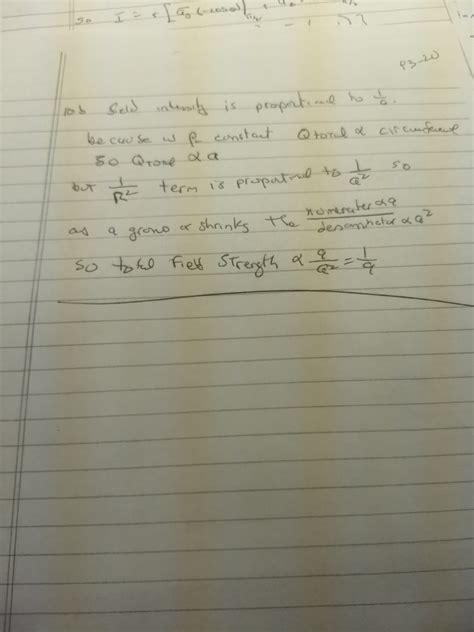 so I = [a₀(-cosθ)]
P3-20
10b field intensity is proportional to 1/a.
because w ρ constant Qtotal α circumference
so Qtotal α a
but 1/R² term is proportional to 1/a² so
as a grows or shrinks the numerator α a / denominator α a²
so total Field Strength α a/a² = 1/a